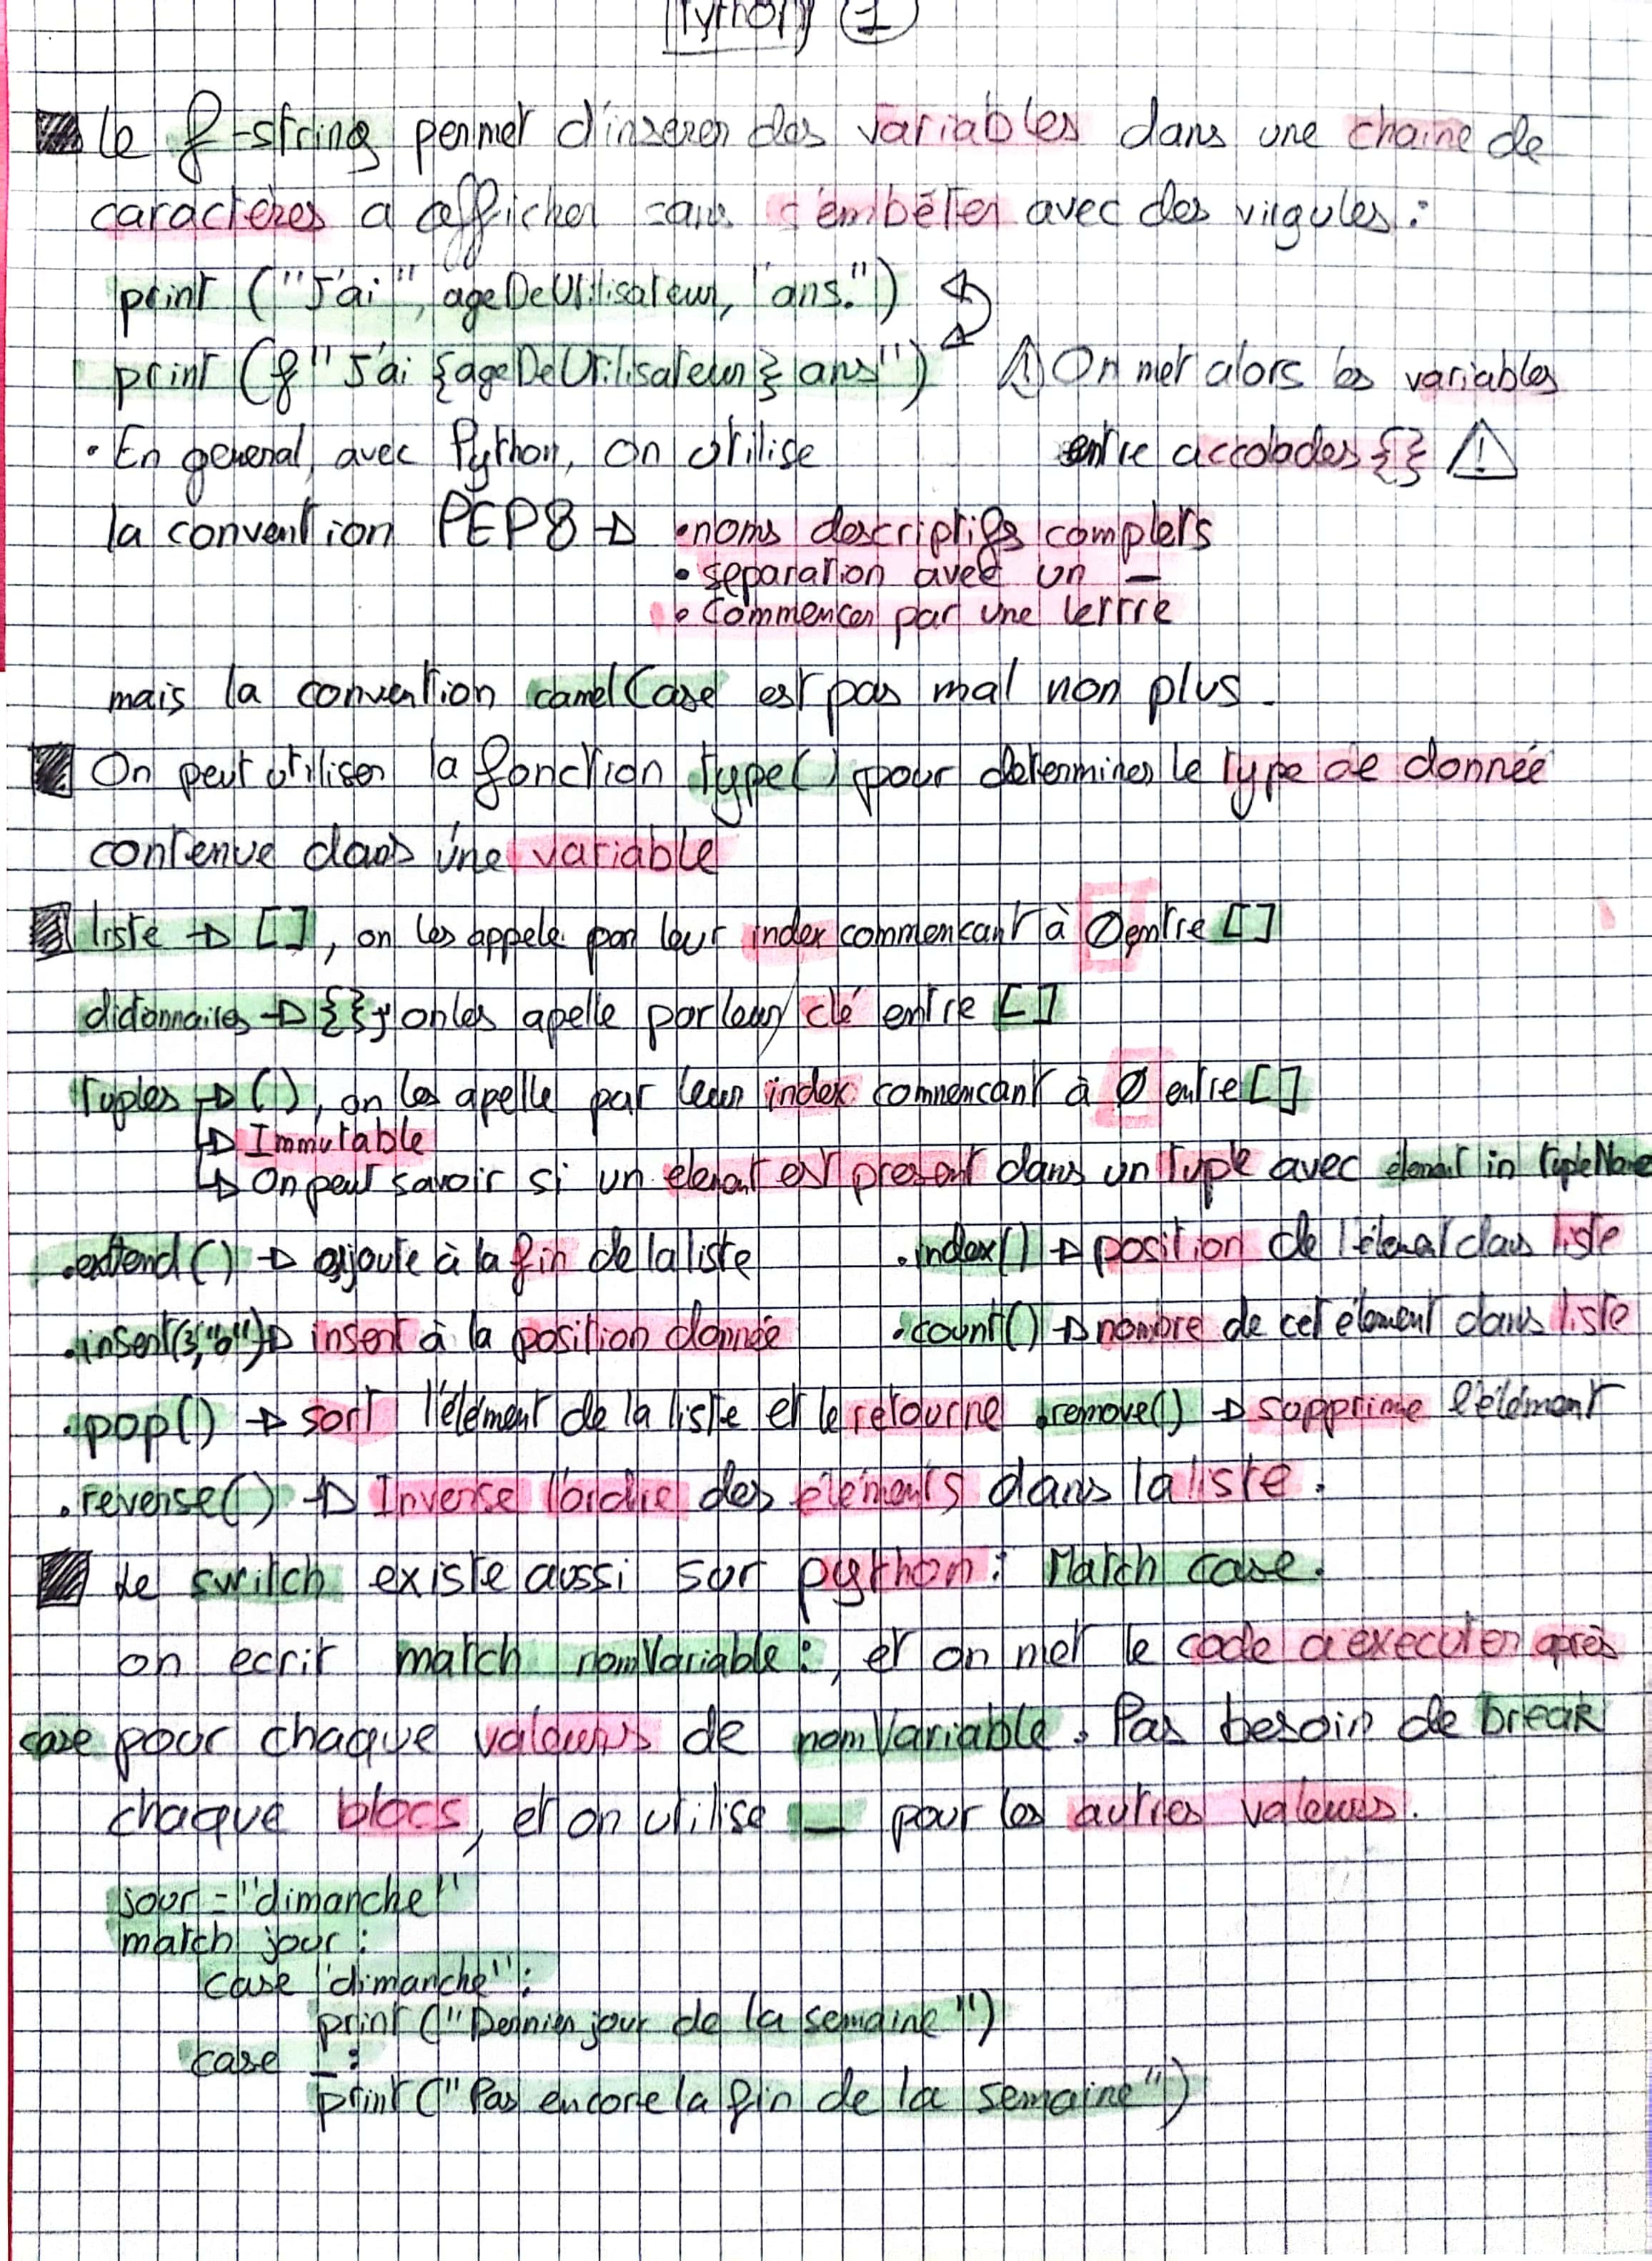 Python 1
Le f-string permet d'inserer des variables dans une chaine de
caractères a afficher sans s'embêter avec des virgules :
print ("J'ai", ageDeUtilisateur, "ans.")
print (f"J'ai {ageDeUtilisateur} ans") ⚠ On met alors les variables
entre accolades {} ⚠
• En general, avec Python, on utilise
la convention PEP8 → • noms descriptifs complets
• separation avec un _
• Commencer par une lettre
mais la convention camelCase est pas mal non plus.
On peut utiliser la fonction type() pour determiner le type de donnée
contenue dans une variable
liste → [], on les appele par leur index commencant à 0 entre []
dictionnaires → {}, on les apelle par leur clé entre []
Tuples → (), on les apelle par leur index commencant à 0 entre []
↳ Immutable
↳ On peut savoir si un element est present dans un tuple avec element in tupleName
.extend() → ajoute à la fin de la liste .index() → position de l'élement dans liste
.insert(3,"o") → insert à la position donnée .count() → nombre de cet élement dans liste
.pop() → sort l'élément de la liste et le retourne .remove() → supprime l'élément
.reverse() → Inverse l'ordre des éléments dans la liste.
Le switch existe aussi sur python : Match case.
on ecrit match nomVariable:, et on met le code a executer après
case pour chaque valeurs de nomVariable. Pas besoin de break
chaque blocs, et on utilise _ pour les autres valeurs.
jour = "dimanche"
match jour :
case "dimanche":
print ("Dernier jour de la semaine")
case _:
print ("Pas encore la fin de la semaine")